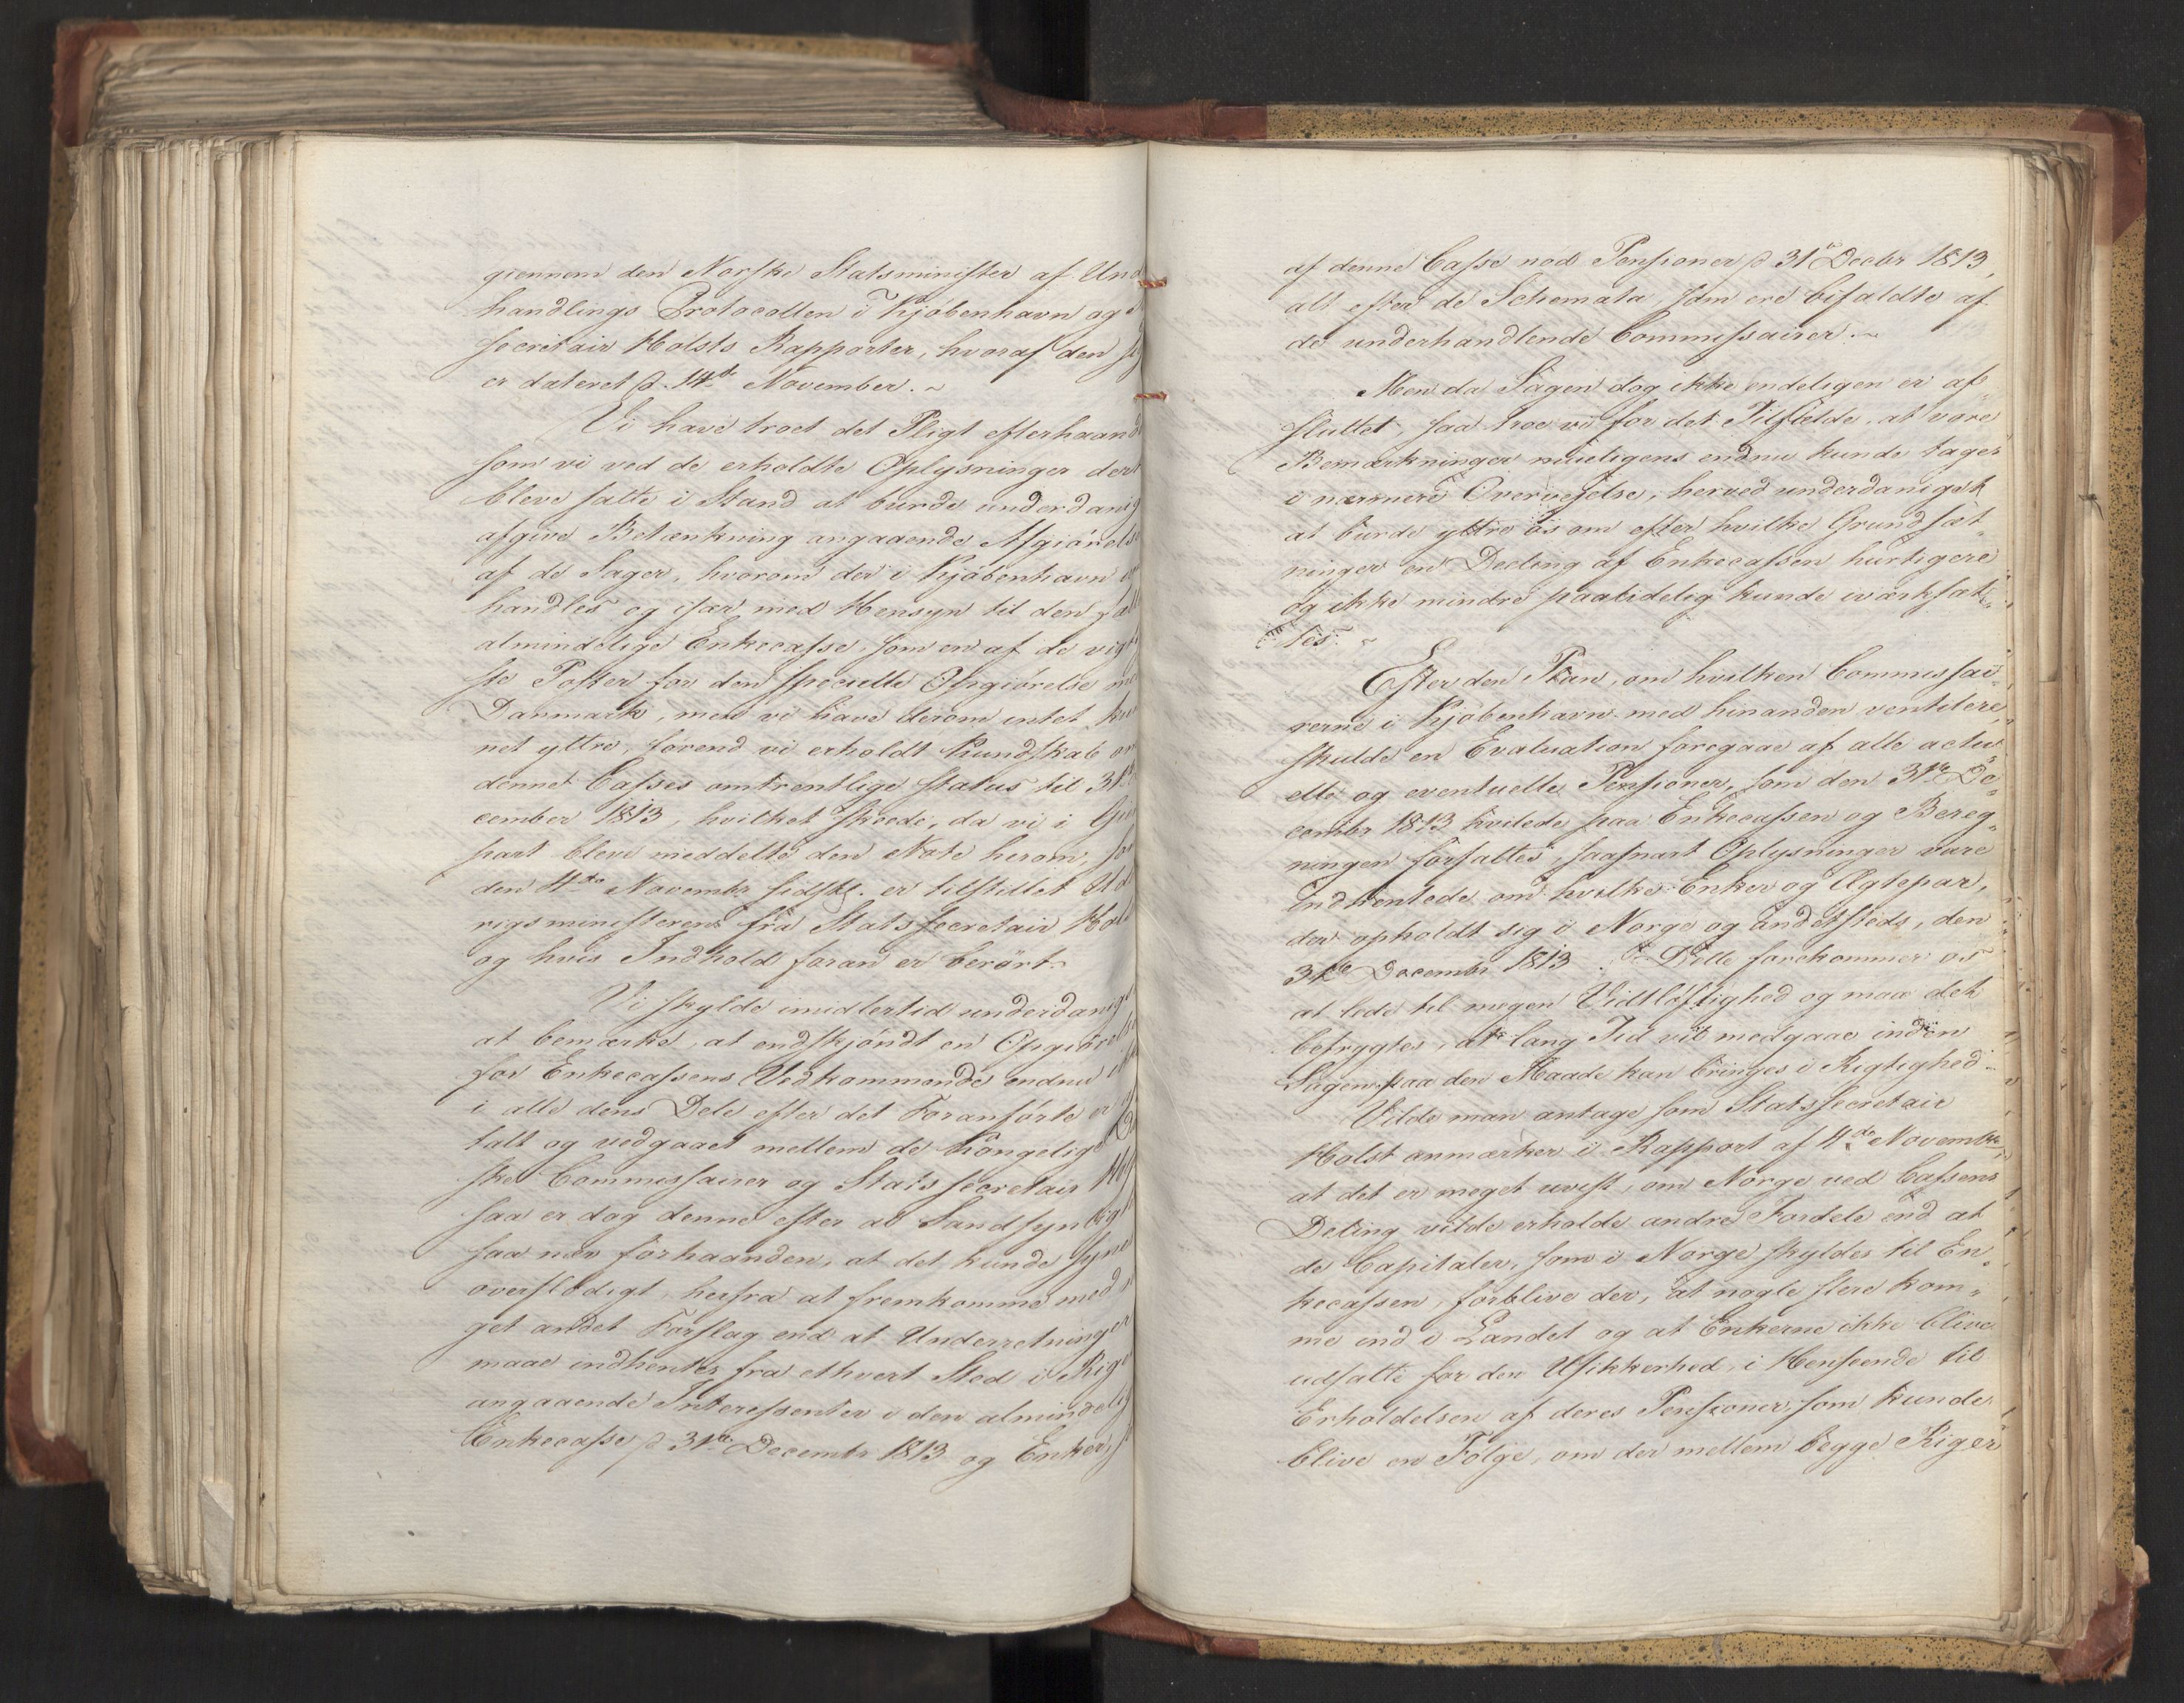 giennem den Norske Statsminister af Und
handlings Protocollen i Kjøbenhavn og
secretair Holsts Rapporter, hvoraf den
er dateret p 14de November. ~
Vi have troet det Pligt efterhaand
som vi ved de erholdte Oplysninger der
bleve satte i Stand at burde underdanig
afgive Betænkning angaaende Afgiørelse
af de Sager, hvorom der i Kjøbenhavn
handles og især med Hensyn til den
almindelige Enkecasse, som en af de vigt
ste Poster for den specielle Opgiørelse
Danmark, men vi have derom intet kun
net yttre, førend vi erholdt Kundskab om
dennes Casses omtrentlige status til 31te
cember 1813, hvilket skeede, da vi i Gien
part bleve meddelte den Note herom,
den 4de Novembr sidstl. er tilstillet
rigsministeren fra Statssecretair Hol
og hvis Indhold foran er berørt. ~
Vi skylde imidlertid underdanig
at bemærke, at endskjøndt en Opgiørelse
for Enkecassens Vedkommende endnu
i alle dens Dele efter det Foranførte er
talt og vedgaaet mellem de Kongelige
ske Commissairer og Statssecretair
saa er dog denne efter al Sandsynlig
saa nær forhaanden, at det kunde synes
overflødigt herfra at fremkomme med
get andet Forslag end at Underretninger
maae indhentes fra ethvert Sted i Rige
angaaende Interessenter i den almindelig
Enkecasse p 31te Decembr 1813 og Enker,
af denne Casse nød Pensioner p 31te Decbr 1813,
alt efter de Schemata, som ere bifaldte af
de underhandlende Commissairer. ~
Men da Sagen dog ikke endeligen er af
sluttet, saa troe vi for det Tilfælde, at vore
Bemærkninger mueligens endnu kunde tages
i nærmere Overveielse, herved underdanigst
at burde yttre os om efter hvilke Grundsæt„
ninger en Deeling af Enkecassen hurtigere
og ikke mindre paalidelig kunde iværksæt„
tes. ~
Efter den Plan, om hvilken Commissai„
rerne i Kjøbenhavn med hinanden ventilere,
skulde en Evaluation foregaae af alle actu„
elle og eventuelle Pensioner, som den 31te De„
cembr 1813 hvilede paa Enkecassen og Bereg„
ningen forfattes, saasnart Oplysninger vare
indhentede om hvilke Enker og Ægtepar,
der opholdt sig i Norge og andetsteds, den
31te Decembr 1813. Dette forekommer os
at lede til megen Vidtløftighed og maa det
befrygtes, at lang Tid vil medgaae inden
Sagen paa den Maade kan bringes i Rigtighed.
Vilde man antage som Statssecretair
Holst anmærker i Rapport af 4de Novembr,
at det er meget uvist, om Norge ved Cassens
Deling vilde erholde andre Fordele end at
de Capitaler, som i Norge skyldes til En„
kecassen, forblive der, at nogle flere kom„
me ind i Landet og at Enkerne ikke blive
udsatte for den Usikkerhed, i Henseende til
Erholdelsen af deres Pensioner, som kunde
blive en Følge, om der mellem begge Riger